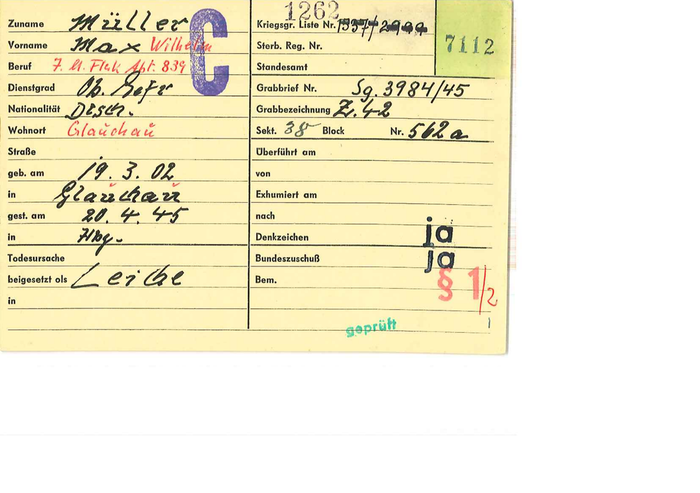 Zuname Müller
Vorname Max Wilhelm
Beruf 7. M. Flak Abt. 839
Dienstgrad Ob. Gefr
Nationalität Dtsch.
Wohnort Glauchau
Straße
geb. am 19. 3. 02
in Glauchau
gest. am 20. 4. 45
in Hbg.
Todesursache
beigesetzt als Leiche
in
C
1262
Kriegsgr. Liste Nr.
7112
Sterb. Reg. Nr.
Standesamt
Grabbrief Nr. Sg. 3984/45
Grabbezeichnung Z. 42
Sekt. 38 Block Nr. 562a
Überführt am
von
Exhumiert am
nach
Denkzeichen ja
Bundeszuschuß ja
Bem. § 1/2
geprüft